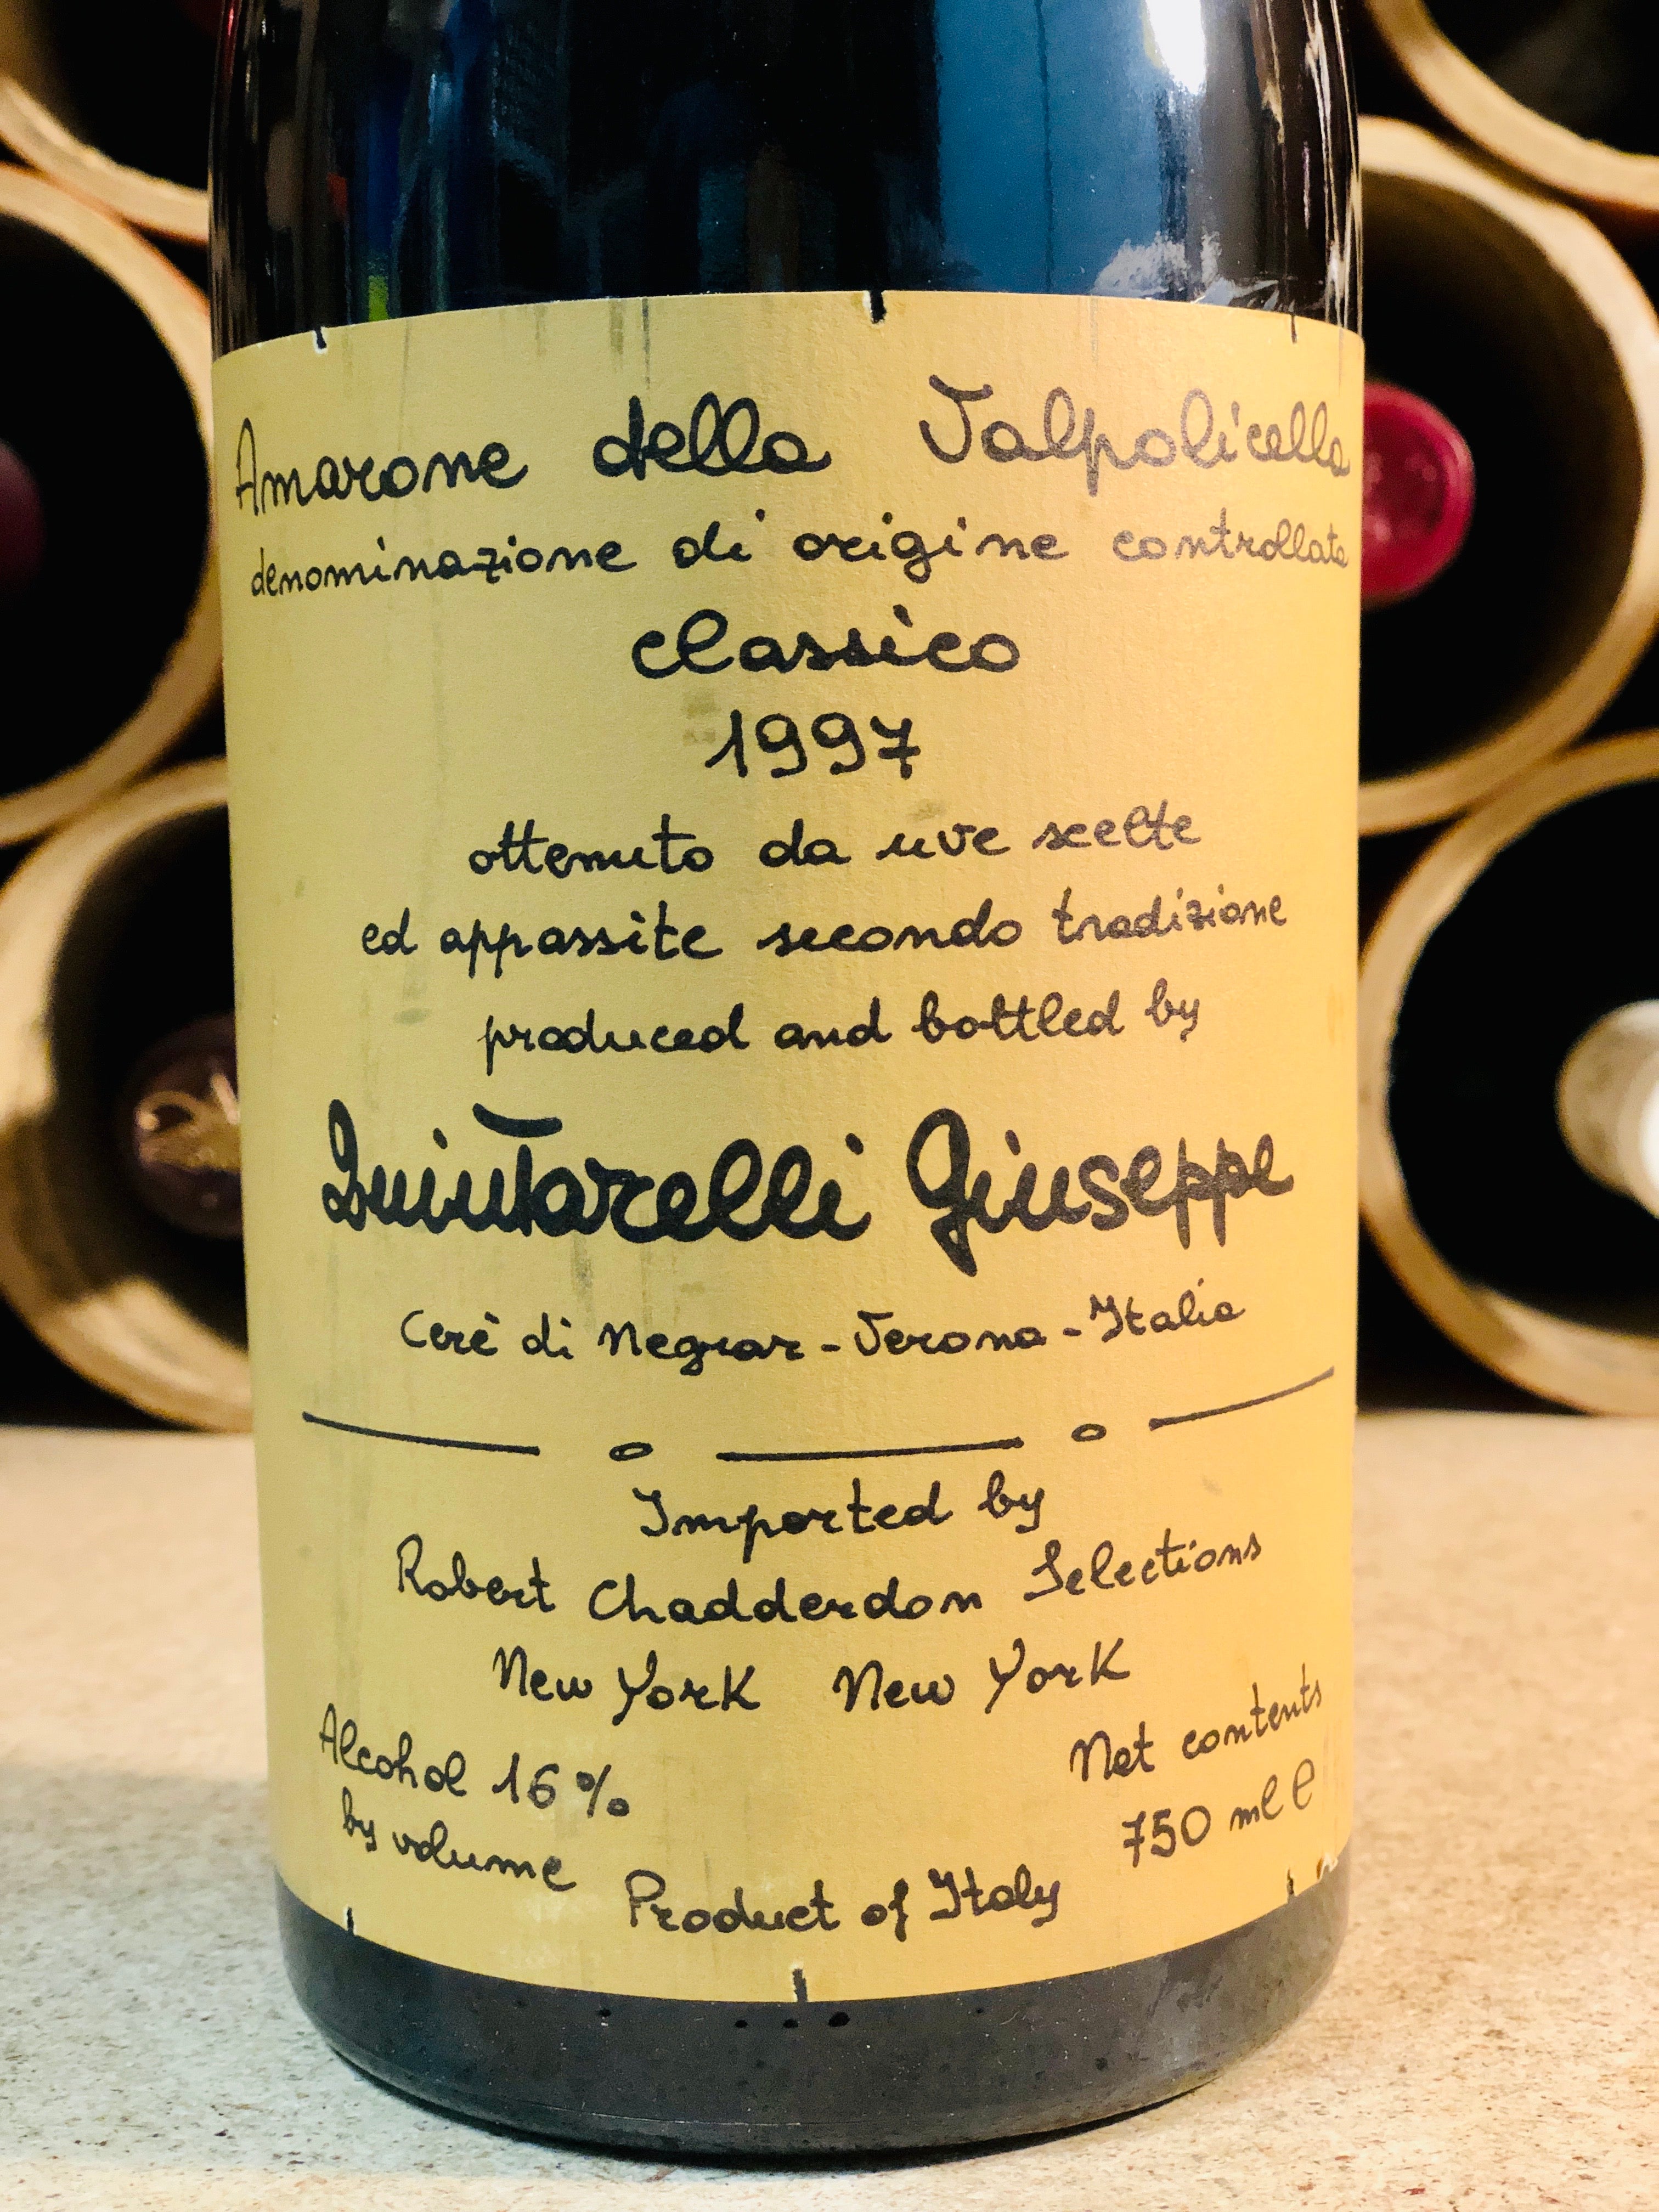 Amarone della Valpolicella
denominazione di origine controllata
classico
1997
ottenuto da uve scelte
ed appassite secondo tradizione
produced and bottled by
Quintarelli Giuseppe
Cerè di Negrar - Verona - Italia
Imported by
Robert Chadderdon Selections
New York New York
Alcohol 16%
by volume
Net contents
750 ml e
Product of Italy